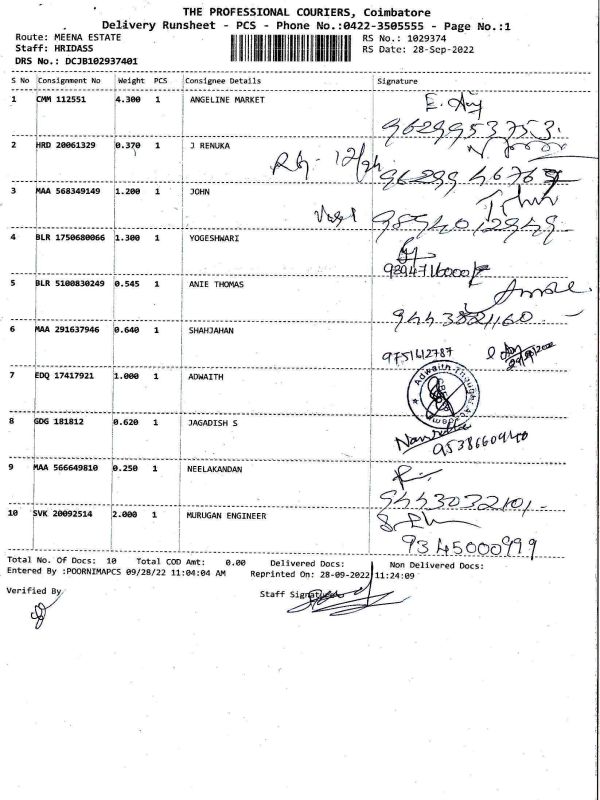 THE PROFESSIONAL COURIERS, Coimbatore
Delivery Runsheet - PCS - Phone No.:0422-3505555 - Page No.:1
Route: MEENA ESTATE
RS No.: 1029374
Staff: HRIDASS
RS Date: 28-Sep-2022
DRS No.: DCJB102937401
S No Consignment No Weight PCS Consignee Details Signature
1 CMM 112551 4.300 1 ANGELINE MARKET
9629953753.
2 HRD 20061329 0.370 1 J RENUKA
96299 46769
3 MAA 568349149 1.200 1 JOHN John
9894012949
4 BLR 1750680066 1.300 1 YOGESHWARI
9894716000
5 BLR 5100830249 0.545 1 ANIE THOMAS
9443821160
6 MAA 291637946 0.640 1 SHAHJAHAN
9751412787
7 EDQ 17417921 1.000 1 ADWAITH
8 GDG 181812 0.620 1 JAGADISH S
9538660940
9 MAA 566649810 0.250 1 NEELAKANDAN
9443032101.
10 SVK 20092514 2.000 1 MURUGAN ENGINEER
9345000999
Total No. Of Docs: 10 Total COD Amt: 0.00 Delivered Docs: Non Delivered Docs:
Entered By :POORNIMAPCS 09/28/22 11:04:04 AM Reprinted On: 28-09-2022 11:24:09
Verified By
Staff Signature